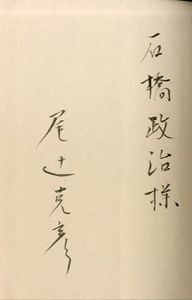 石橋政治様
尾辻克彦